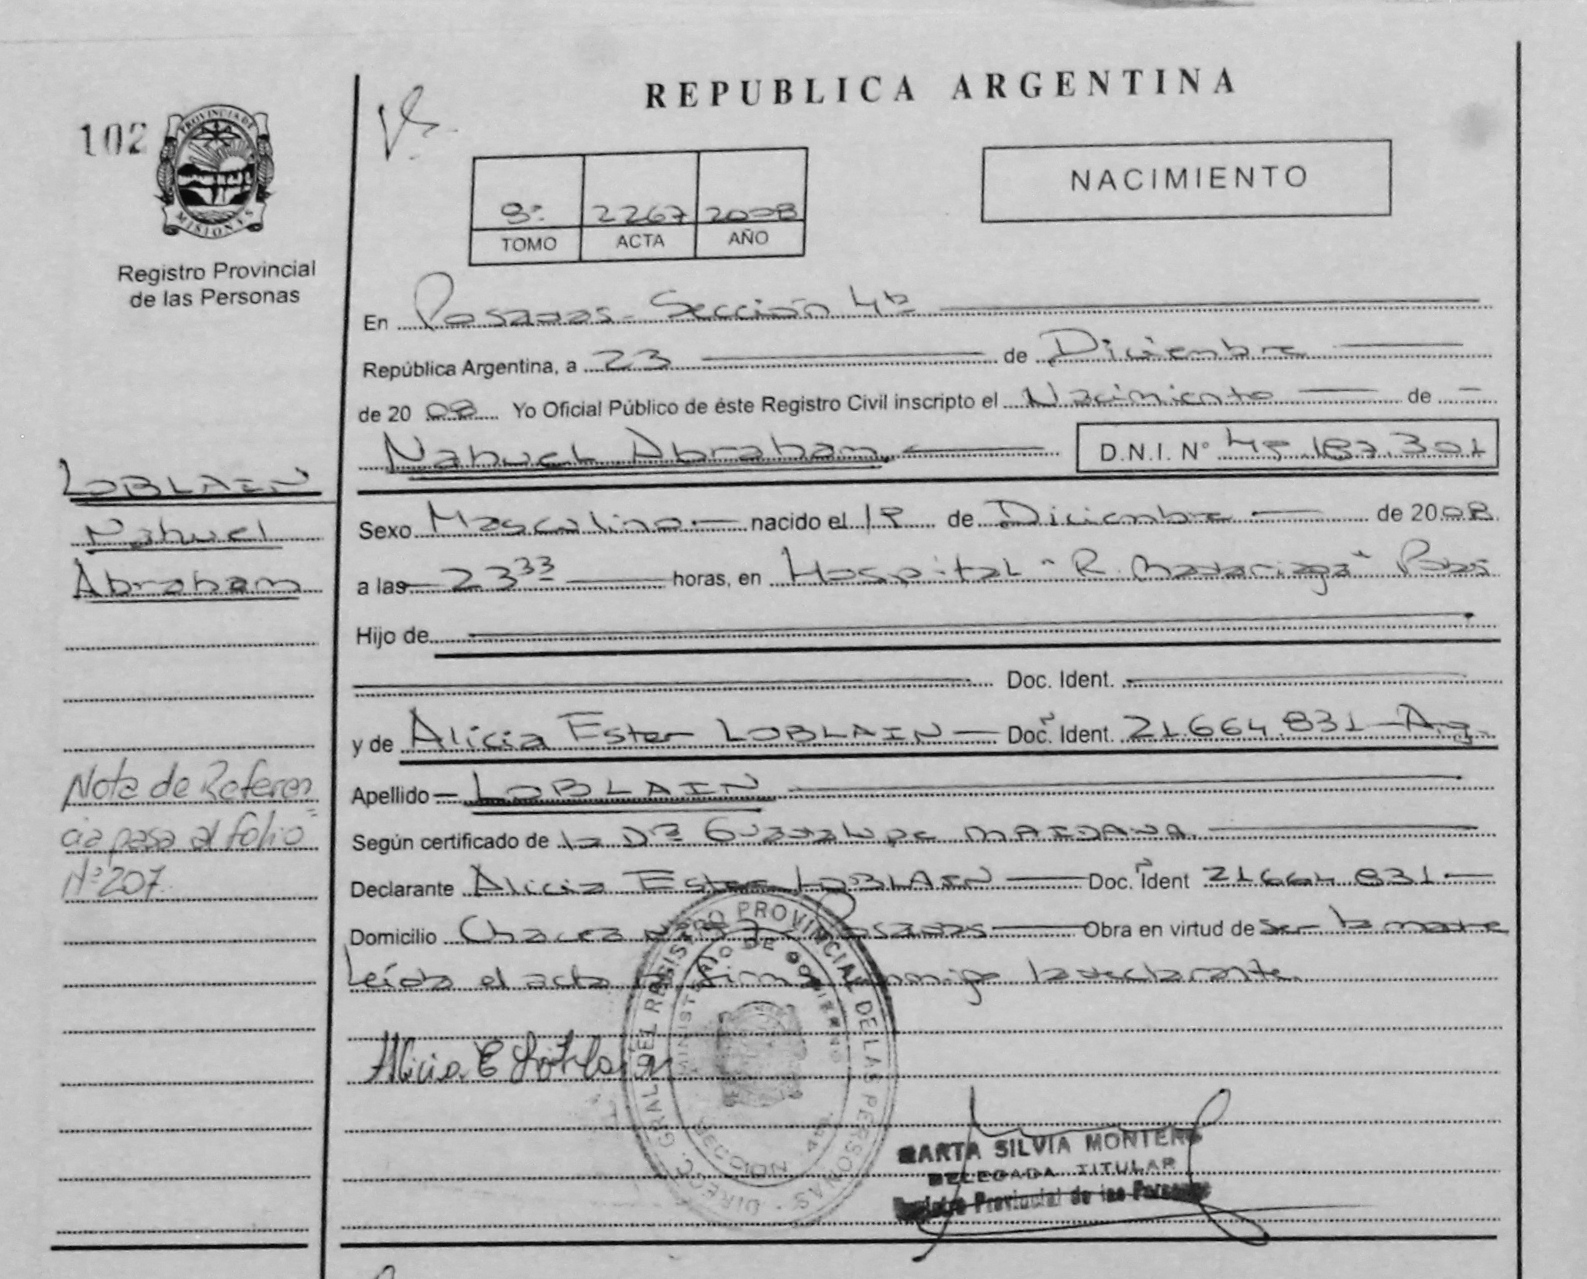 REPUBLICA ARGENTINA
102
PROVINCIA DE
MISIONES
Registro Provincial
de las Personas
NACIMIENTO
9º 2267 2008
TOMO ACTA AÑO
En Posadas - Sección 4ta
República Argentina, a 23 de Diciembre
de 2008 Yo Oficial Público de éste Registro Civil inscripto el Nacimiento de
Nahuel Abraham. D.N.I. Nº 301
Sexo Masculino nacido el de Diciembre de 2008
a las 23 33 horas, en Hospital "R. Madariaga" Pdas
Hijo de
Doc. Ident.
y de Alicia Ester LOBLAIN Doc. Ident. 21.664.831 Arg.
Apellido LOBLAIN
Según certificado de la Dra Guadalupe MAIDANA.
Declarante Alicia Ester LOBLAIN Doc. Ident 21.664.831
Domicilio Chacra Posadas Obra en virtud de ser la madre
Leída el acta la firma conmigo la declarante.
Alicia E Loblain
LOBLAIN
Nahuel
Abraham
Nota de Referen
cia pasa al folio
Nº 207.
DIREC. GRAL. DEL REGISTRO PROVINCIAL DE LAS PERSONAS
MINISTERIO DE GOBIERNO
SECCION 4ta.
MARTA SILVIA MONTERO
DELEGADA TITULAR
Registro Provincial de las Personas